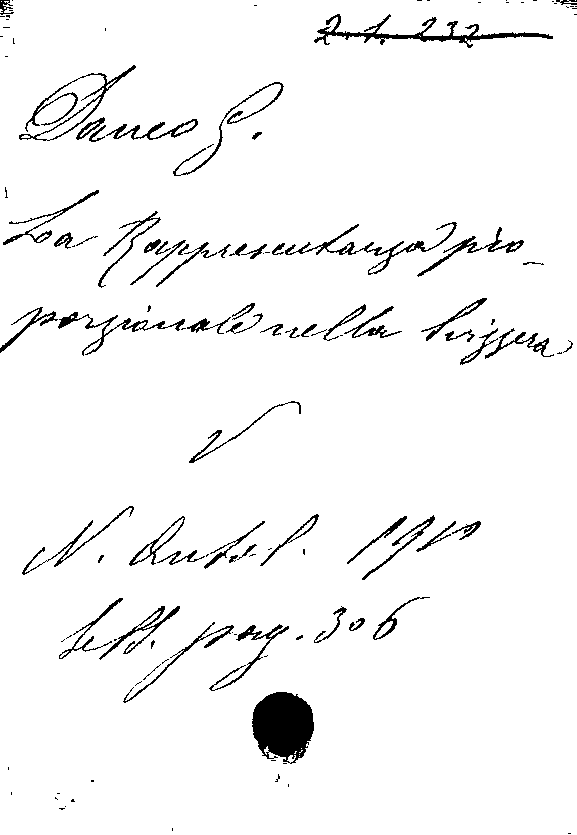 2.1.232
Daneo G.
La Rappresentanza pro-
porzionale nella Svizzera
V
N. Antol. 1910
Sett. pag. 306